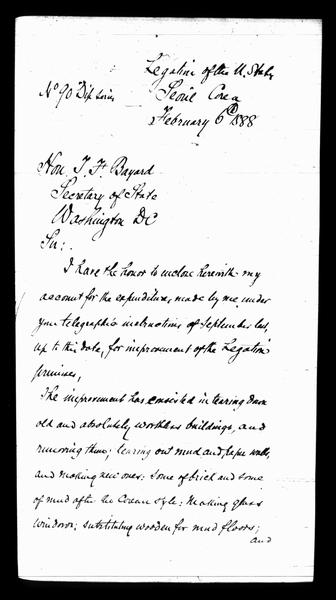 Legation of the U. States
Seoul Corea
February 6th 1888
No 90 Dip. Series
Hon. T. F. Bayard
Secretary of State
Washington DC
Sir:
I have the honor to inclose herewith my
account for the expenditures made by me under
your telegraphic instructions of September last,
up to this date, for improvement of the Legation
premises.
The improvement has consisted in tearing down
old and absolutely worthless buildings, and
removing them; tearing out mud and paper walls,
and making new ones: some of brick and some
of mud after the Corean style; making glass
windows; substituting wooden for mud floors;
and